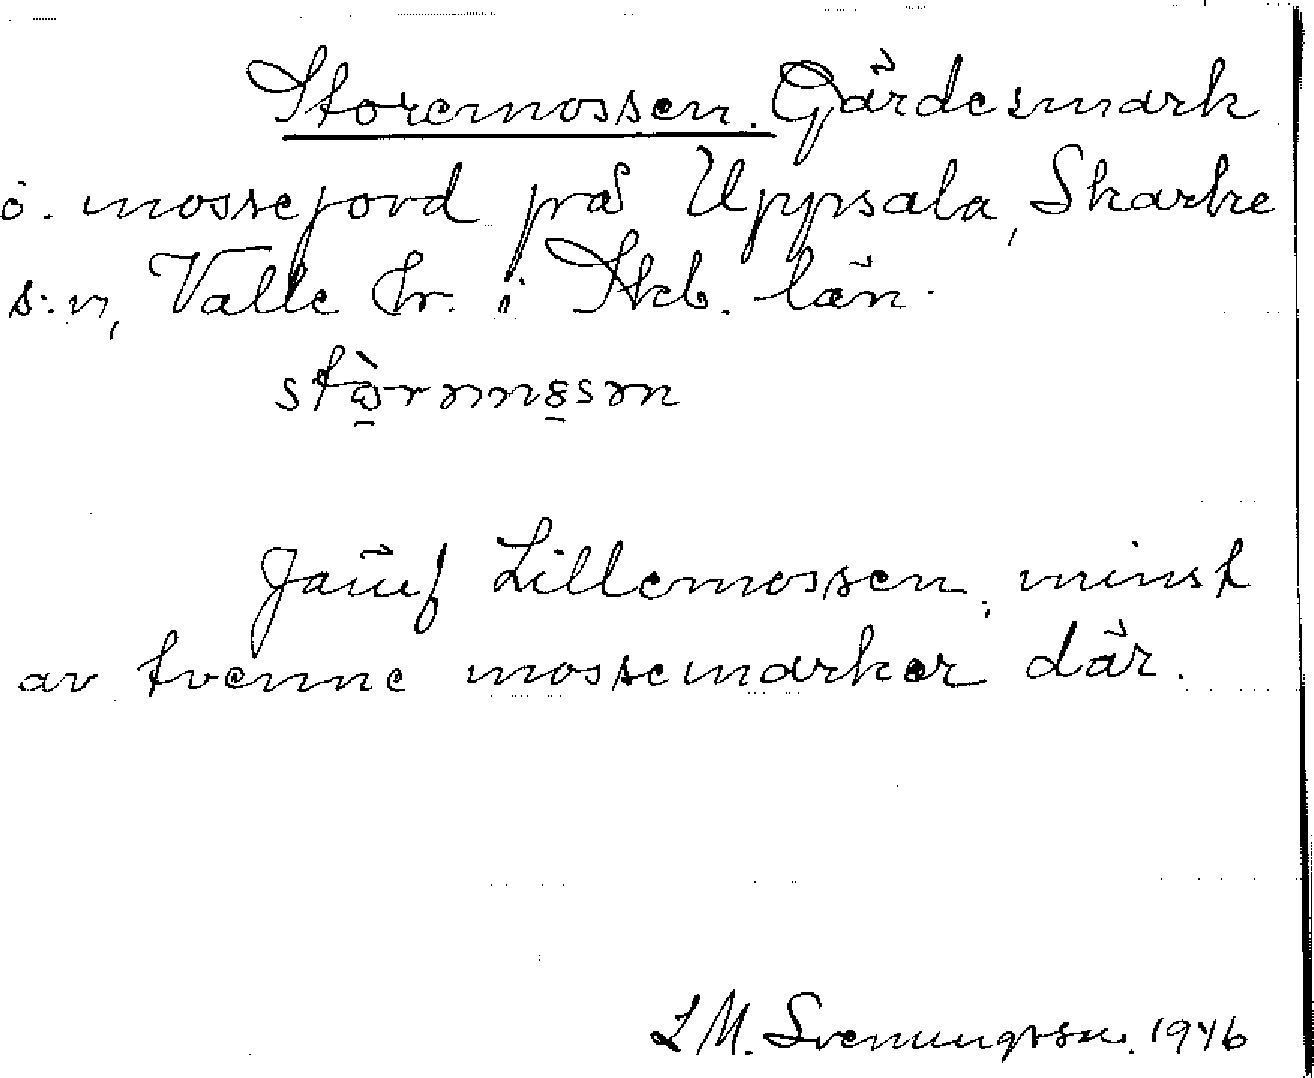 Storemossen. Gärdesmark
o. mossejord på Uppsala, Skarke
s:n, Valle hr. i Skb. län.
Jämf Lillemossen, minst
av tvenne mossemarker där.
L M. Svenungsson. 1946